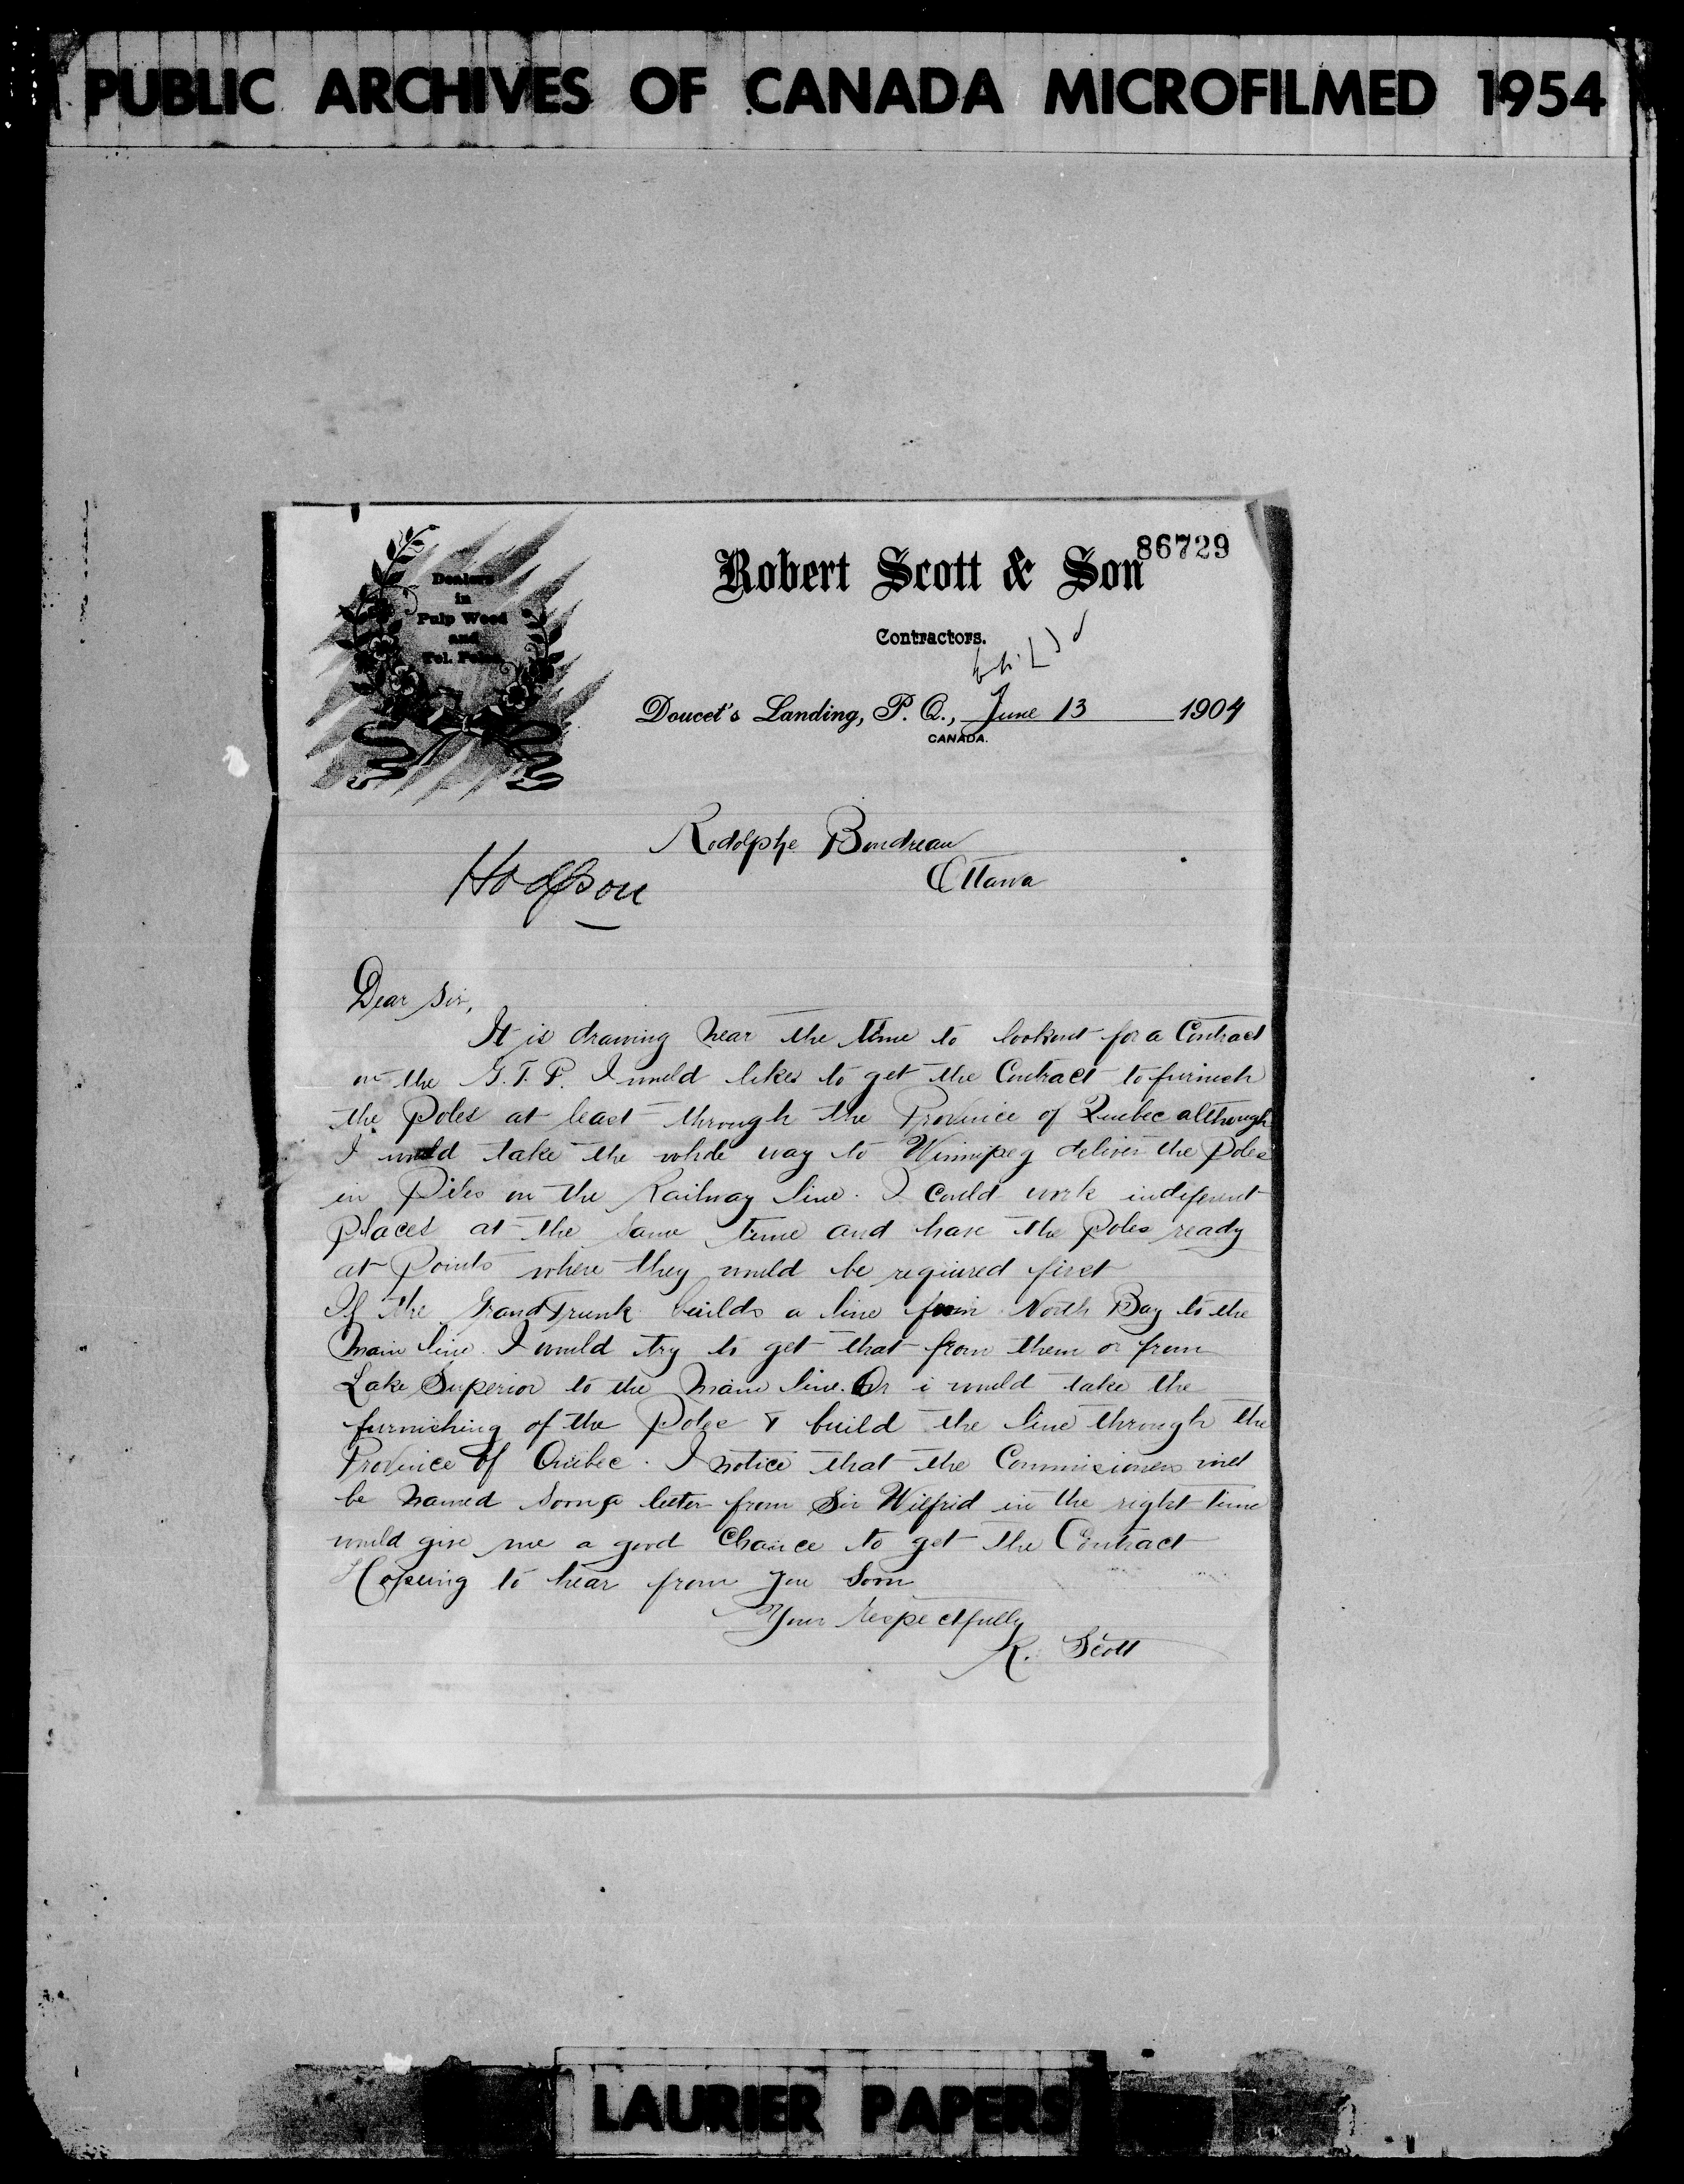 PUBLIC ARCHIVES OF CANADA MICROFILMED 1954
86729
Dealers
in
Pulp Wood
and
Tel. Poles
Robert Scott & Son
Contractors.
Doucet's Landing, P. Q., June 13 1904
CANADA.
Rodolphe Boudreau
Ottawa
Hodgson
Dear Sir,
It is drawing near the time to lookout for a Contract
on the G.T.P. I would likes to get the Contract to furnish
the Poles at least through the Province of Quebec although
I would take the whole way to Winnipeg deliver the Poles
in Piles on the Railway line. I could work indiferent
places at the same time and have the Poles ready
at Points where they would be required first
If the Grand Trunk builds a line from North Bay to the
Main line. I would try to get that from them or from
Lake Superior to the Main line. Or i would take the
furnishing of the Poles & build the line through the
Province of Quebec. I notice that the Commisioners will
be named soon, a letter from Sir Wilfrid in the right time
would give me a good Chance to get the Contract
Hopeing to hear from you soon
Your respectfully
R. Scott
LAURIER PAPERS